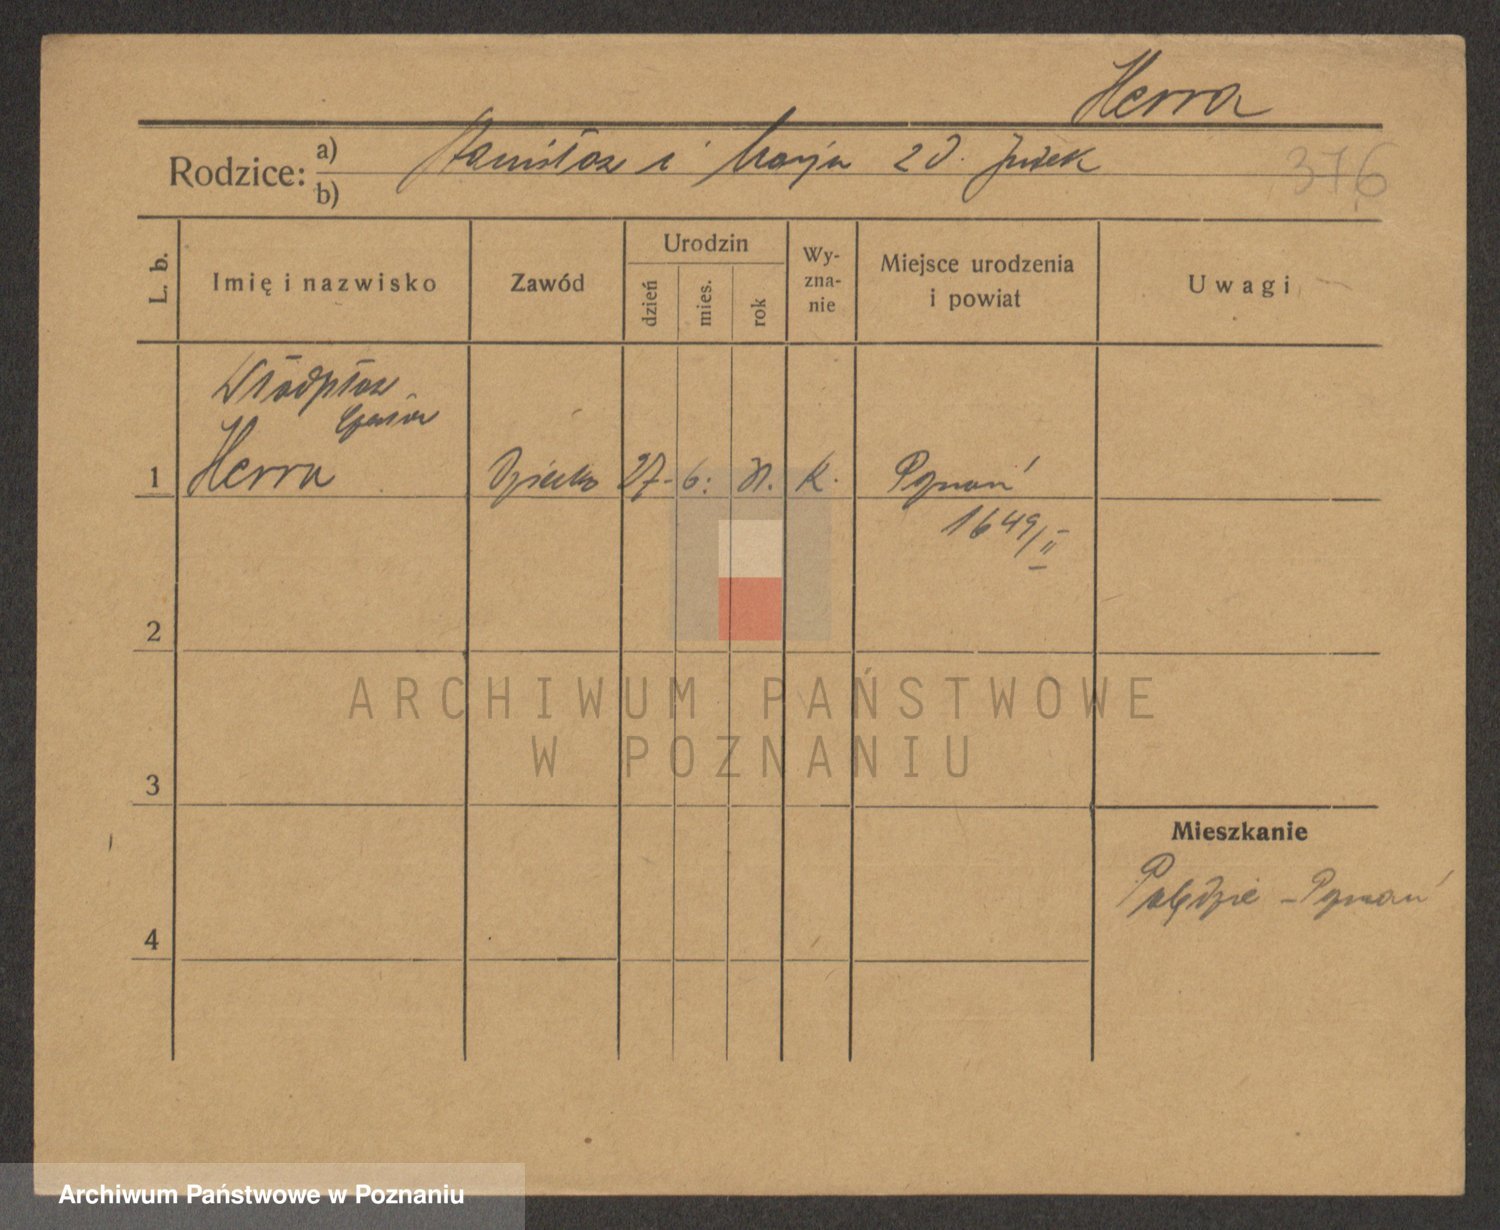 Herra
Rodzice: a) b) Stanisław i Marja zd. Judek
376
L. b.
Imię i nazwisko
Zawód
Urodzin
dzień
mies.
rok
Wy-
zna-
nie
Miejsce urodzenia
i powiat
Uwagi
Władysław
Herra
1
Dziecko 27. 6. 31. K. Poznań
1649/II
2
3
4
Mieszkanie
Palędzie - Poznań
ARCHIWUM PAŃSTWOWE
W POZNANIU
Archiwum Państwowe w Poznaniu